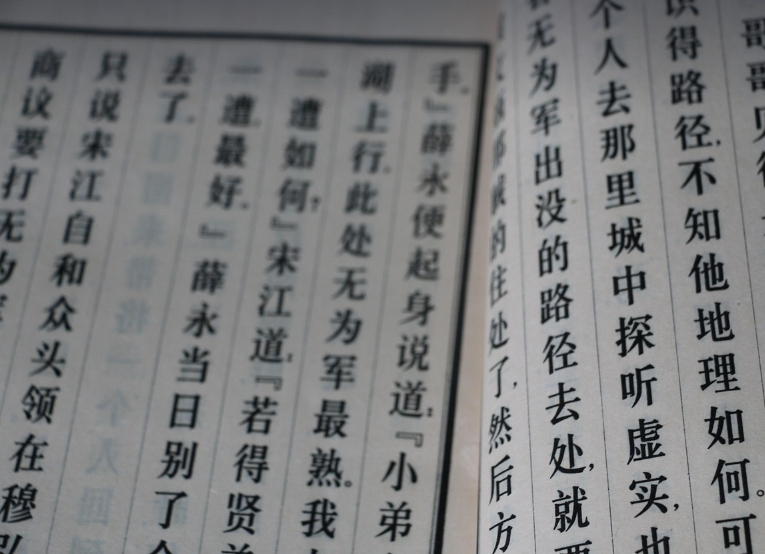 哥哥
识得路径,不知他地理如何。可
个人去那里城中探听虚实,也
无为军出没的路径去处,就要
贼的住处了,然后方
手。』薛永便起身说道:『小弟
湖上行。此处无为军最熟。我
一遭如何?』宋江道:『若得贤
一遭最好。』薛永当日别了
去了。
只说宋江自和众头领在穆弘
商议要打无为军